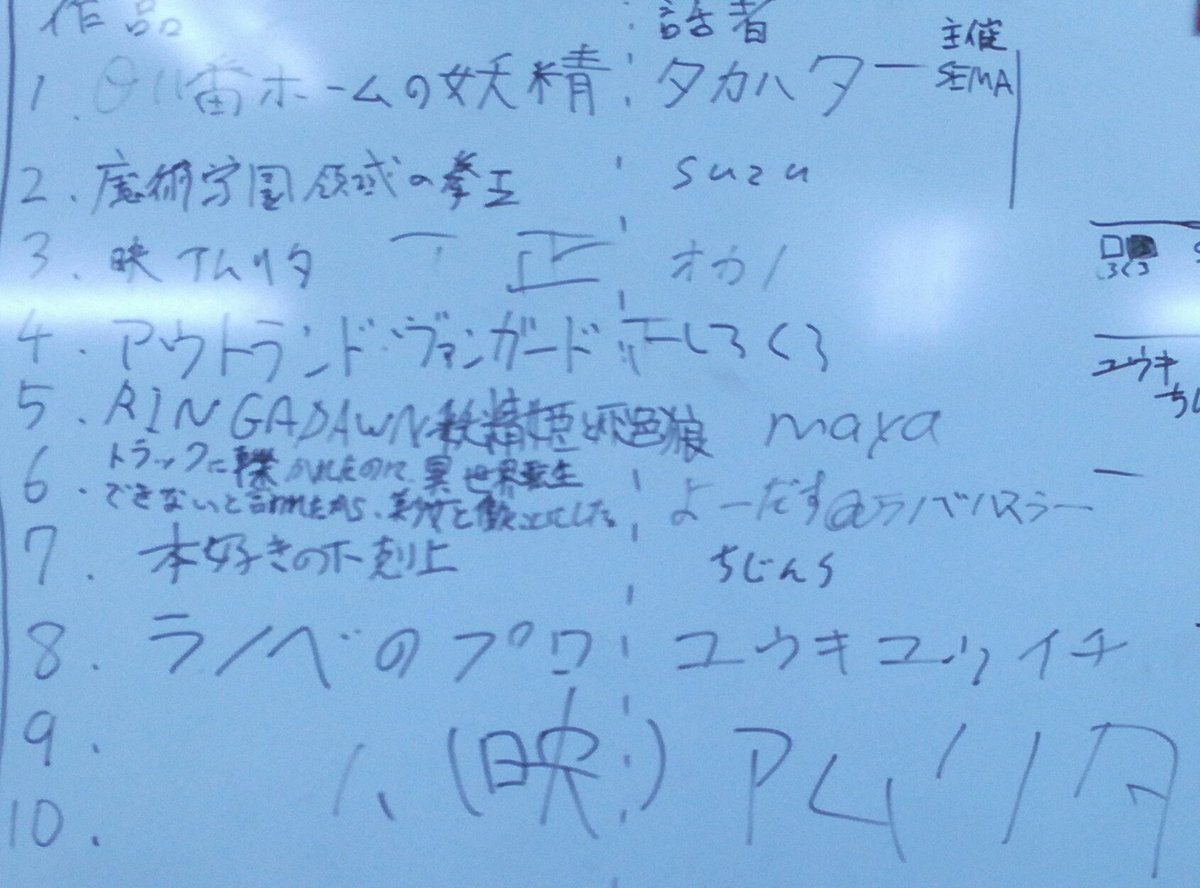 作品 話者
主催
1. 番ホームの妖精 タカハター SEMA
2. 魔術学園領域の拳王 suzu
3. 映アムリタ 一 正 オカノ
4. アウトランド・ヴァンガード 下 しろくろ
5. RINGADAWN 妖精姫と灰色狼 maya
トラックに轢かれたので、異世界転生
6. できないと言われたから、美少女と よーだす@ラノベハスラー
7. 本好きの下剋上 ちじんら
8. ラノベのプロ ユウキユウイチ
9.
10. (映) アムリタ
ユウキ